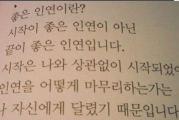 좋은 인연이란?
시작이 좋은 인연이 아닌
끝이 좋은 인연입니다.
시작은 나와 상관없이 시작되었어
인연을 어떻게 마무리하는가는
나 자신에게 달렸기 때문입니다